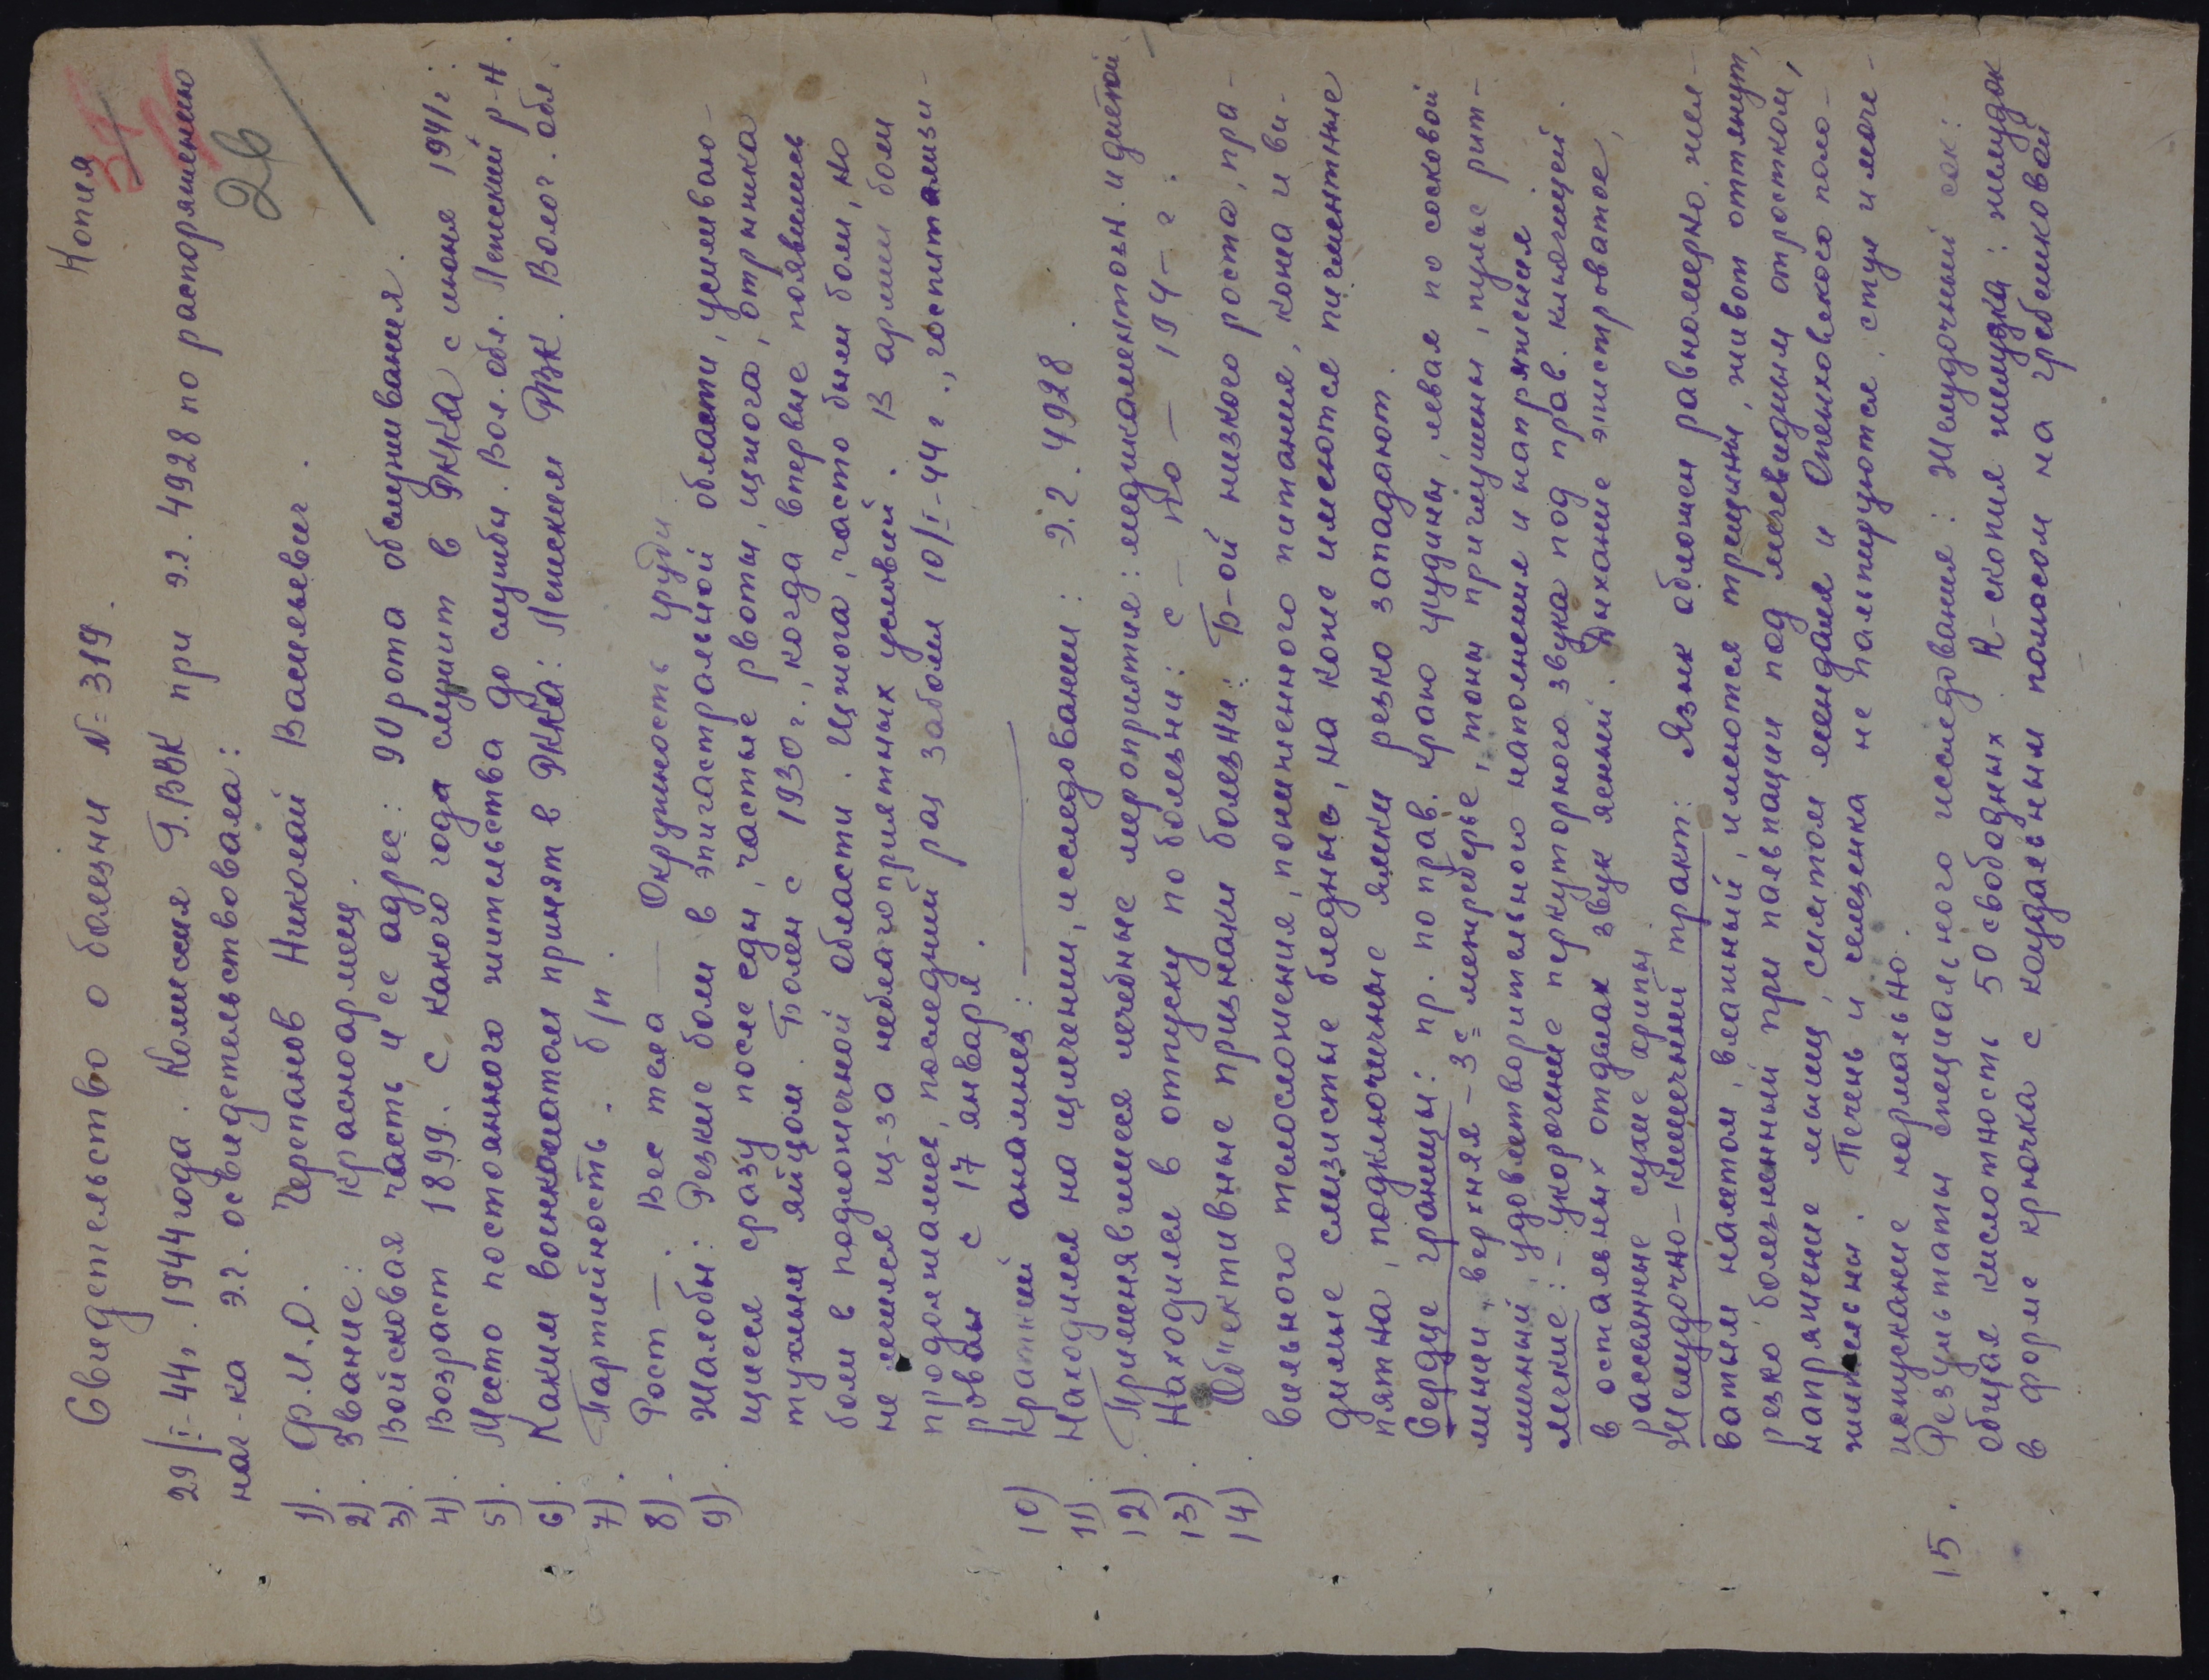 Копия
34
26
Свидетельство о болезни № 319.
29/I-44г. 1944 года. Комиссия Г.ВВК при эг. 4928 по распоряжению
нач-ка эг. освидетельствовала:
1). Ф.И.О. Черепанов Николай Васильевич.
2). Звание: красноармеец.
3). Войсковая часть и ее адрес: 90 рота обслуживания.
4). Возраст 1899. С какого года служит в РККА с июня 1941 г.
5). Место постоянного жительства до службы. Вол. обл. Лежский р-н.
6). Каким военкоматом принят в РККА: Лежским РВК. Волог. обл.
7). Партийность. б/п.
8). Рост —. Вес тела — Окружность груди
9). Жалобы: Резкие боли в эпигастральной области, усиливаю-
щиеся сразу после еды, частые рвоты, изжога, отрыжка
тухлым яйцом. Болен с 1930 г., когда впервые появились
боли в подложечной области. Изжога, часто были боли, но
не лечился из-за неблагоприятных условий. В армии боли
продолжались, последний раз заболел 10/I-44 г., госпитализи-
рован с 17 января.
10) Краткий анамнез: —
11). Находился на излечении, исследовании: э.г. 4928.
12). Применявшиеся лечебные мероприятия: медикаментозн. и диетой
13). Находился в отпуску по болезни: с — по — 194 — г.
14). Об"ективные признаки болезни: Б-ой низкого роста, пра-
вильного телосложения, пониженного питания, кожа и ви-
димые слизистые бледные, на коже имеются пигментные
пятна, подключичные ямки резко западают.
Сердце границы: пр. по прав. краю грудины, левая по сосковой
линии, верхняя - 3е межреберье, тоны приглушены, пульс рит-
мичный, удовлетворительного наполнения и напряжения
легкие: - укорочение перкуторного звука под прав. ключицей.
в остальных отделах звук ясный. Дыхание жестковатое,
рассеянные сухие хрипы.
Желудочно-кишечный тракт: Язык обложен равномерно, жел-
ватым налетом, влажный, имеются трещины, живот оттянут,
резко болезненный при пальпации под мечевидным отростком,
напряжение мышц, симптом менделя и Опенховского поло-
жительны. Печень и селезенка не пальпируются, стул и моче-
испускание нормально.
15. Результаты специального исследования: Желудочный сок:
общая кислотность 50 свободных R-скопия желудка: желудок
в форме крючка с каудальным полюсом на гребешковой